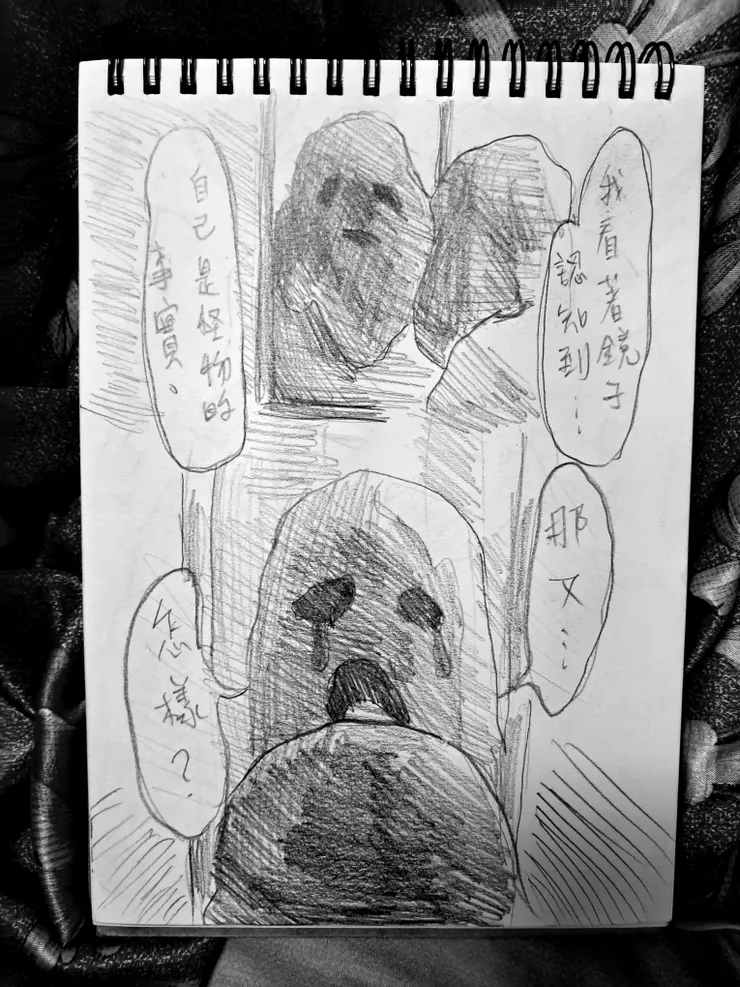 我看著鏡子
認知到…
自己是怪物的
事實。
那又…
怎樣？